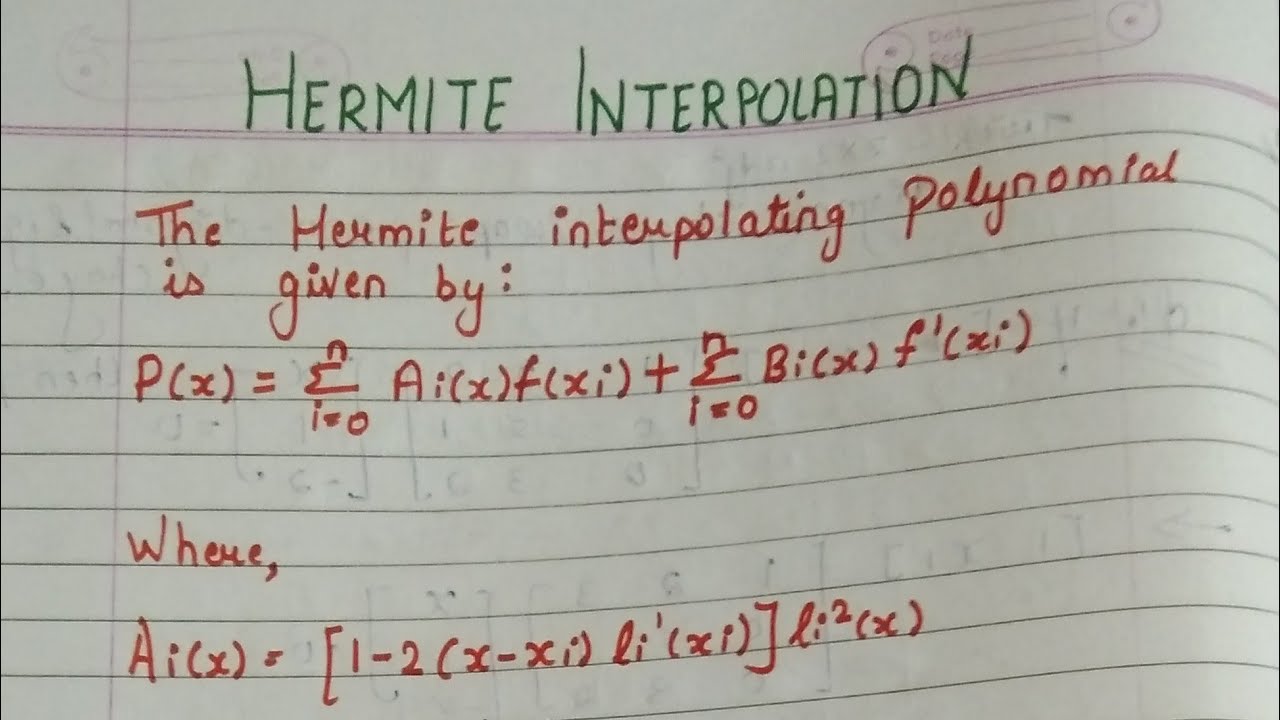 HERMITE INTERPOLATION
The Hermite interpolating polynomial
is given by:
P(x) = Σⁿᵢ₌₀ Ai(x)f(xi) + Σⁿᵢ₌₀ Bi(x) f'(xi)
Where,
Ai(x) = [1-2(x-xi) li'(xi)] li²(x)